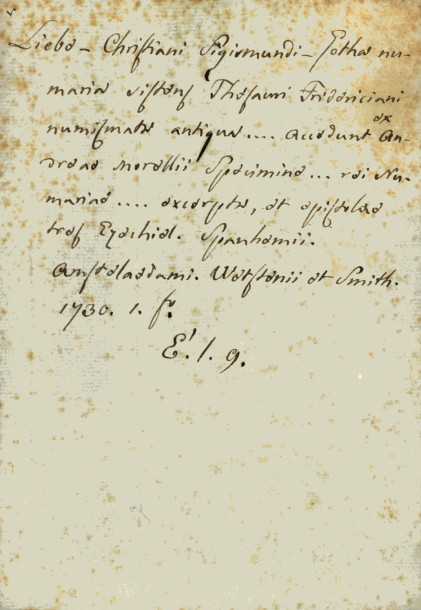 Liebe - Christiani Sigismundi - Gotha nu-
maria sistens Thesauri Fridericiani
numismata antiqua .... accedunt ex An-
dreae Morellii Specimine ... rei Nu-
mariae .... excerpta, et epistolae
tres Ezechiel. Spanhemii.
Amstelaedami. Wetstenii et Smith.
1730. 1. fo.
E'. 1. 9.